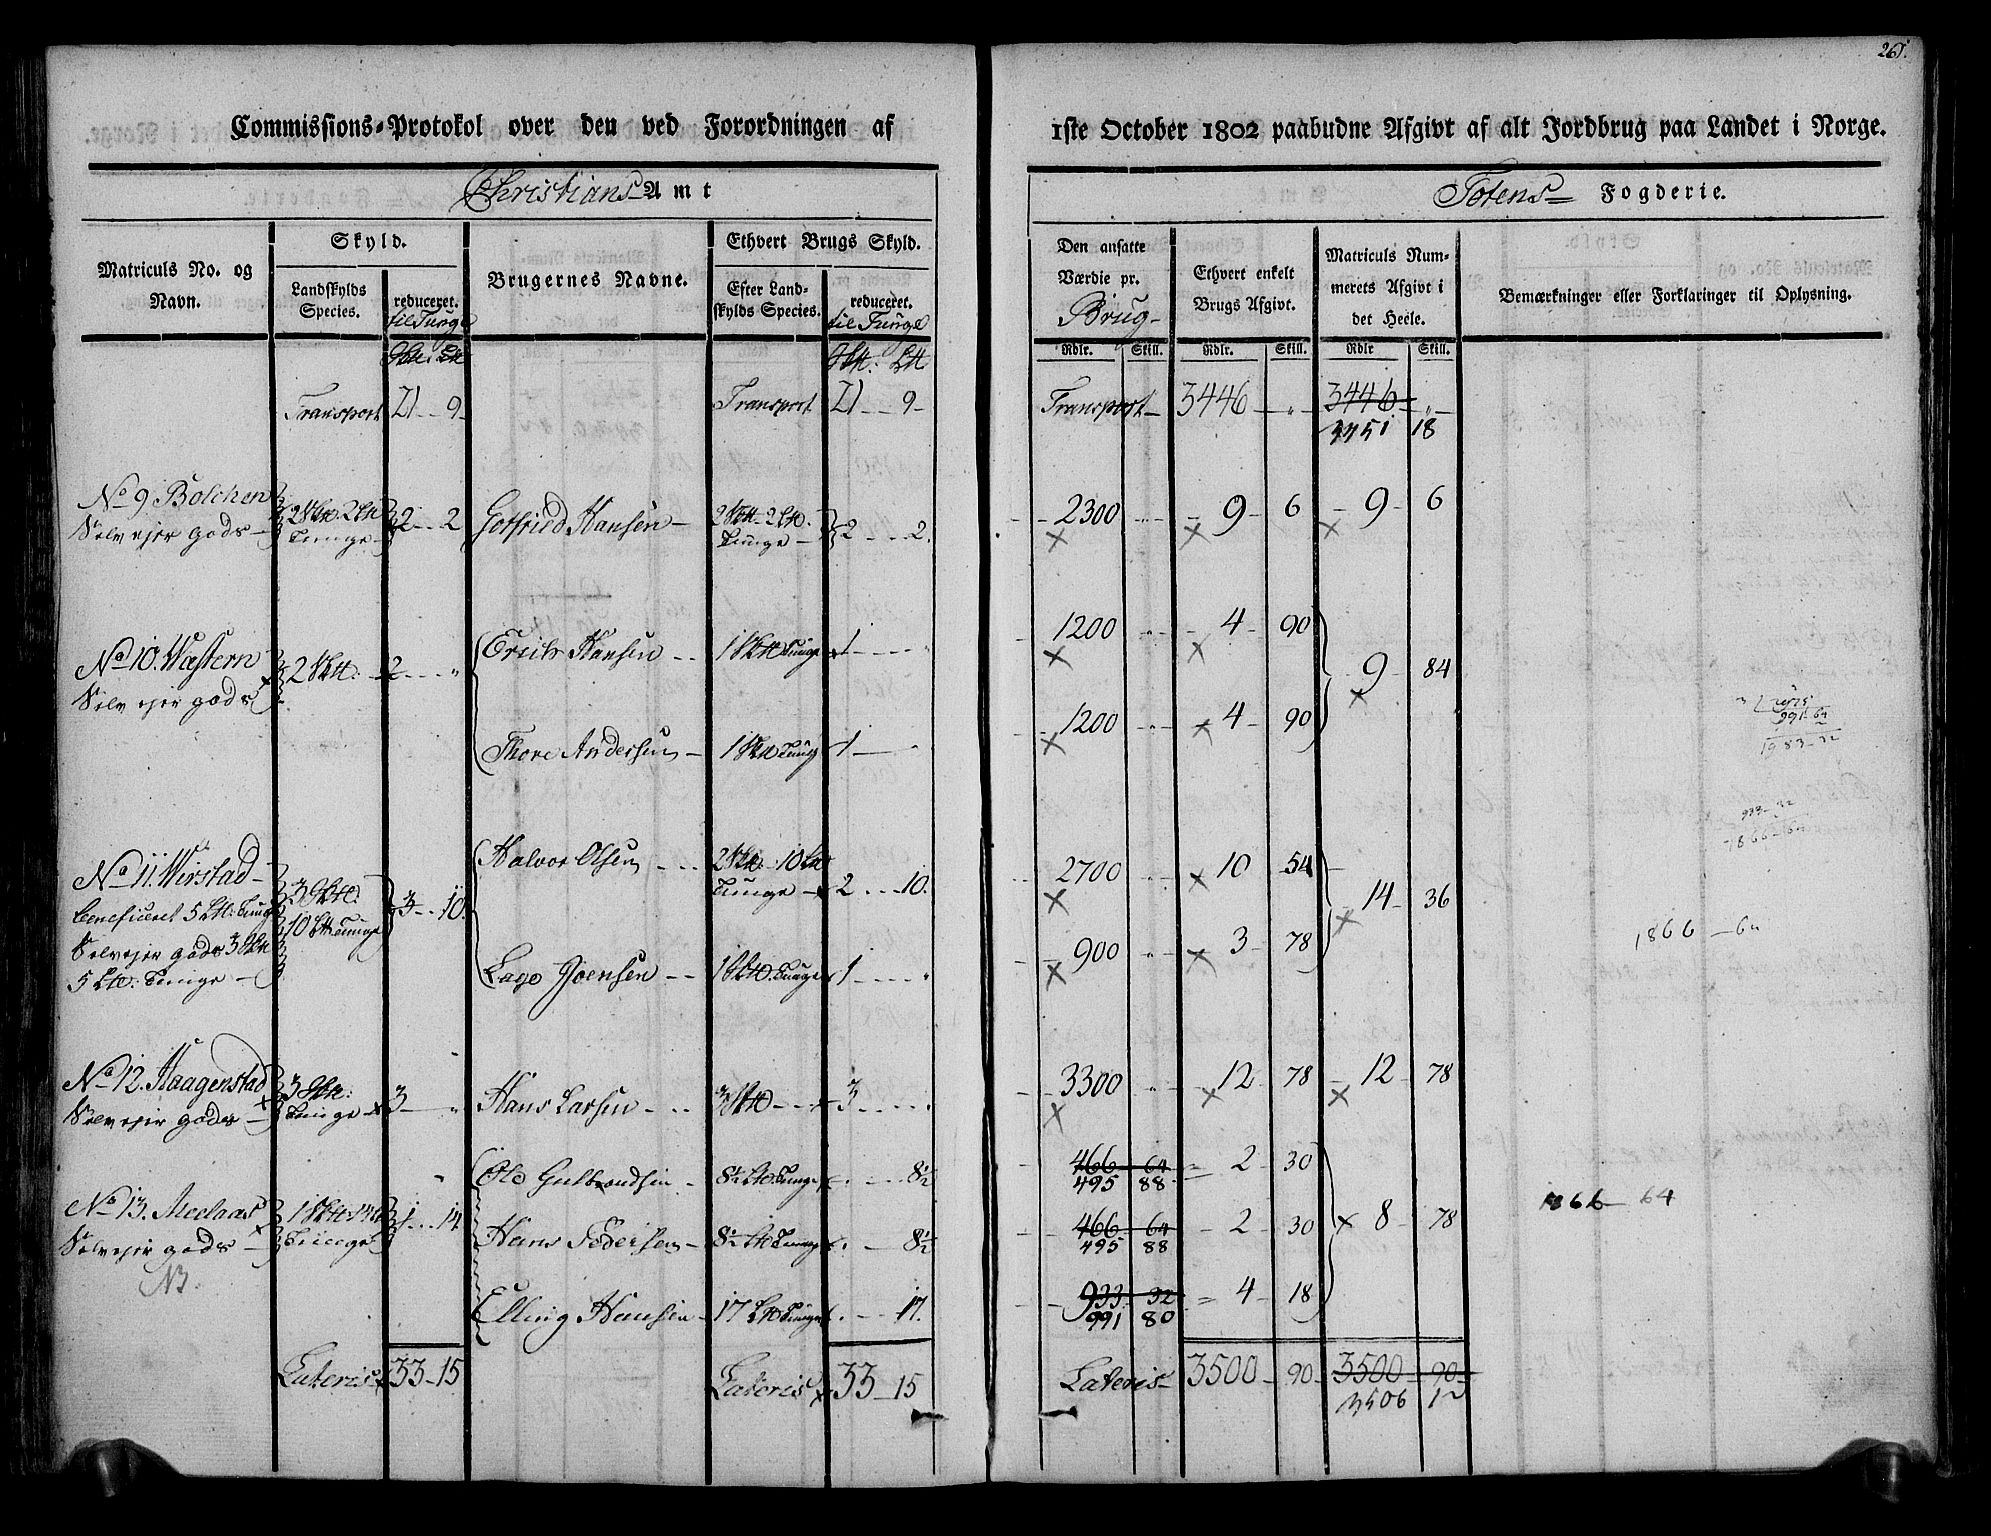 261.
Commissions-Protokol over den ved Forordningen af 1ste October 1802 paabudne Afgivt af alt Jordbrug paa Landet i Norge.
Christians Amt
Totens Fogderie.
Matriculs No. og Navn.
Skyld.
Landskylds Species.
reduceret. til Tunge
Brugernes Navne.
Ethvert Brugs Skyld.
Efter Landskylds Species.
reduceret. til Tunge
Den ansatte Værdie pr. Brug
Ethvert enkelt Brugs Afgivt.
Matriculs Nummerets Afgivt i det Heele.
Bemærkninger eller Forklaringer til Oplysning.
Rdlr. Skill. Rdlr. Skill. Rdlr Skill.
Transport 21 9 Transport 21 9 Transport 3446 " 3446 "
3451 18
No 9 Bolchen 2 2 Gotfried Hansen 2 2. 2300 9 6 9 6
Selvejer gods Tunge Tunge
Erich Hansen 1 Tunge 1 1200 4 90
No 10. Western 2 2 " 9 84
Selvejer gods
Thore Andersen 1 Tunge 1 1200 4 90
991 64
1983-32
933-32
1866-64
Halvor Olsen 2 10 2 10. 2700 10 54
No 11. Wirstad 3 3 10. Tunge 14 36
beneficeret 5 Tunge 10 Tunge
Selvejer gods 3
5 Tunge Lage Joensen 1 Tunge 1 " 900 3 78
1866-64
No 12. Haagenstad 3 3 " Hans Larsen 3 3 3300 12 78 12 78
Selvejer gods Tunge
Ole Gulbrandsen 8½ Tunge 8½ 466 64 2 30
495 88
No 13. Meelaas 1 14 1 14 8 78
Selvejer gods Tunge Hans Pedersen 8½ Tunge 8½ 466 64 2 30
495 88
1866-64
NB.
Elling Hansen 17 Tunge 17. 933 32 4 18
991 80
Lateris 33 15 Lateris 33 15 Lateris 3500 90 3500 90
3506 12